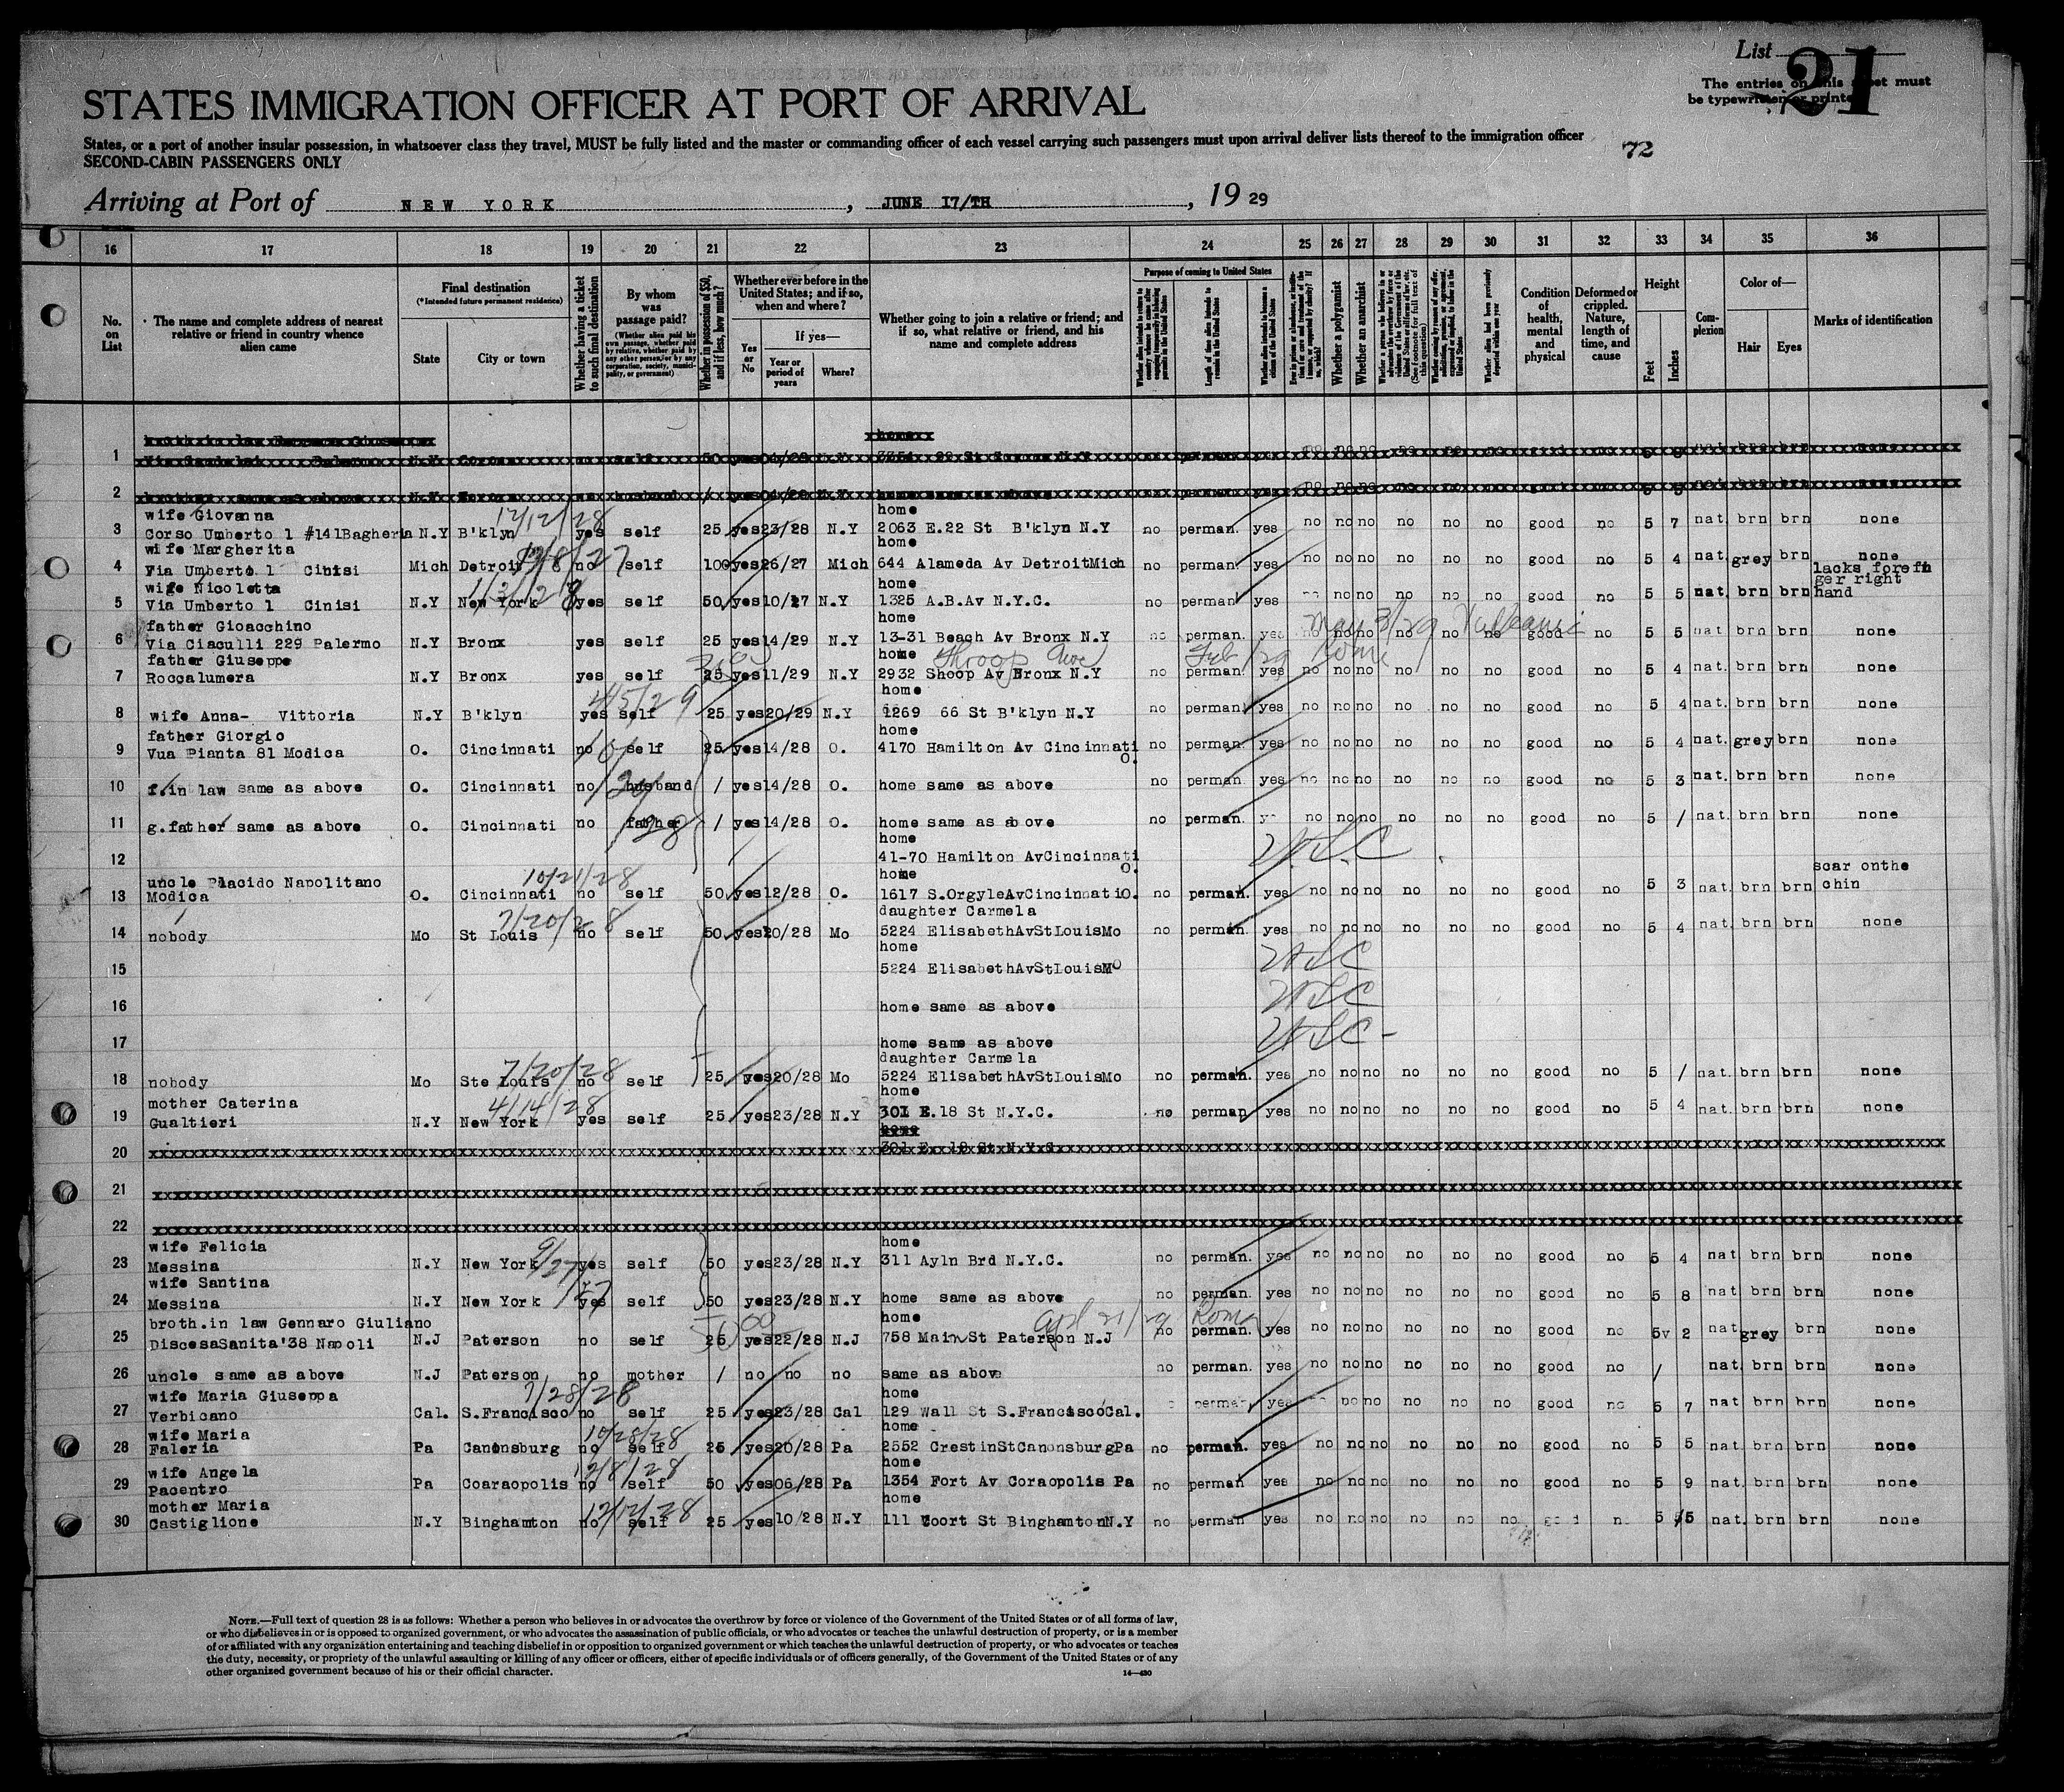 List 21
The entries on this sheet must
be typewritten or printed.
STATES IMMIGRATION OFFICER AT PORT OF ARRIVAL
States, or a port of another insular possession, in whatsoever class they travel, MUST be fully listed and the master or commanding officer of each vessel carrying such passengers must upon arrival deliver lists thereof to the immigration officer
72
SECOND-CABIN PASSENGERS ONLY
Arriving at Port of NEW YORK, JUNE 17/TH, 19 29
16 17 18 19 20 21 22 23 24 25 26 27 28 29 30 31 32 33 34 35 36
No. on List
The name and complete address of nearest relative or friend in country whence alien came
Final destination
(*Intended future permanent residence)
State
City or town
Whether having a ticket to such final destination
By whom was passage paid?
(Whether alien paid his own passage, whether paid by relative, whether paid by any other person, or by any corporation, society, municipality, or government)
Whether in possession of $50, and if less, how much?
Whether ever before in the United States; and if so, when and where?
Yes or No
If yes—
Year or period of years
Where?
Whether going to join a relative or friend; and if so, what relative or friend, and his name and complete address
Purpose of coming to United States
Length of time alien intends to remain in the United States
Whether alien intends to become a citizen of the United States
Whether a polygamist
Whether an anarchist
(See footnote for full text of this question)
Whether alien had been previously deported within one year
Condition of health, mental and physical
Deformed or crippled. Nature, length of time, and cause
Height
Feet
Inches
Complexion
Color of—
Hair
Eyes
Marks of identification
1
2
wife Giovanna home
12/12/28
3 Corso Umberto 1 #141Bagheria N.Y B'klyn yes self 25 yes 23/28 N.Y 2063 E.22 St B'klyn N.Y no perman. yes no no no no no no good no 5 7 nat. brn brn none
wife Margherita home
4 Via Umberto 1 Cinisi Mich Detroit no self 100 yes 26/27 Mich 644 Alameda Av DetroitMich no perman. yes no no no no no no good no 5 4 nat. grey brn none
wige Nicoletta home lacks forefin
ger right
5 Via Umberto 1 Cinisi N.Y New York yes self 50 yes 10/27 N.Y 1325 A.B.Av N.Y.C. no perman yes no no no no no good no 5 5 nat. brn brn hand
father Gioacchino May 3/29 Vulcania
6 Via Ciaculli 229 Palermo N.Y Bronx yes self 25 yes 14/29 N.Y 13-31 Beach Av Bronx N.Y no perman. yes no no no no no good no 5 5 nat brn brn none
father Giuseppe home Throop Ave Feb /29 Roma
7 Roccalumera N.Y Bronx yes self 25 yes 11/29 N.Y 2932 Shoop Av Bronx N.Y no perman. yes no no no no no no good no 5 4 nat. brn brn none
home
4/5/29
8 wife Anna- Vittoria N.Y B'klyn yes self 25 yes 20/29 N.Y 1269 66 St B'klyn N.Y no perman. yes no no no no no no good no 5 4 nat. brn brn none
father Giorgio home
9 Vua Pianta 81 Modica O. Cincinnati no self 25 yes 14/28 O. 4170 Hamilton Av Cincinnati O. no perman. yes no no no no no no good no 5 4 nat. grey brn none
10 f.in law same as above O. Cincinnati no husband / yes 14/28 O. home same as above no perman. yes no no no no no no good no 5 3 nat. brn brn none
11 g.father same as above O. Cincinnati no father / yes 14/28 O. home same as above no perman. no no no no no no good no 5 / nat. brn brn none
home
12 41-70 Hamilton AvCincinnati O. USC
uncle Placido Napolitano home scar onthe
10/21/28
13 Modica O. Cincinnati no self 50 yes 12/28 O. 1617 S.OrgyleAvCincinnatiO. no perman. yes no no no no no no good no 5 3 nat. brn brn chin
daughter Carmela
7/20/28
14 nobody Mo St Louis no self 50 yes 20/28 Mo 5224 ElisabethAvStLouisMo no perman. yes no no no no no no good no 5 4 nat. brn brn none
home
15 5224 ElisabethAvStLouisMO USC
16 home same as above USC
17 home same as above USC
daughter Carmela
7/20/28
18 nobody Mo Ste Louis no self 25 yes 20/28 Mo 5224 ElisabethAvStLouisMo no perman. yes no no no no no no good no 5 / nat. brn brn none
mother Caterina home
4/14/28
19 Gualtieri N.Y New York yes self 25 yes 23/28 N.Y 301 E.18 St N.Y.C. no perman yes no no no no no no good no 5 4 nat. brn brn none
home
20 301 E. 18 St N.Y.C
21
22
wife Felicia home
23 Messina N.Y New York yes self 50 yes 23/28 N.Y 311 Ayln Brd N.Y.C. no perman. yes no no no no no no good no 5 4 nat brn brn none
wife Santina
24 Messina N.Y New York yes self 50 yes 23/28 N.Y home same as above no perman. yes no no no no no no good no 5 8 nat brn brn none
broth.in law Gennaro Giuliano home Apl 21/29 Roma
25 DiscesaSanita'38 Napoli N.J Paterson no self 25 yes 22/28 N.J 758 Main St Paterson N.J no perman. yes no no no no no no good no 5v 2 nat grey brn none
26 uncle same as above N.J Paterson no mother / no no no same as above no perman. yes no no no no no no good no / nat. brn brn none
wife Maria Giuseppa home
7/28/28
27 Verbicano Cal. S.Francisco no self 25 yes 23/28 Cal 129 Wall St S.FranciscoCal. perman yes no no no no no good no 5 7 nat brn brn none
wife Maria home
10/28/28
28 Faleria Pa Canonsburg no self 25 yes 20/28 Pa 2552 CrestinStCanonsburgPa no perman. yes no no no no no no good no 5 5 nat brn brn none
wife Angela home
12/8/28
29 Pacentro Pa Coaraopolis no self 50 yes 06/28 Pa 1354 Fort Av Coraopolis Pa no perman yes no no no no no no good no 5 9 nat. brn brn none
mother Maria home
12/12/28
30 Castiglione N.Y Binghamton no self 25 yes 10/28 N.Y 111 Coort St BinghamtonN.Y no perman yes no no no no no no 5 5 nat. brn brn none
NOTE.—Full text of question 28 is as follows: Whether a person who believes in or advocates the overthrow by force or violence of the Government of the United States or of all forms of law,
or who disbelieves in or is opposed to organized government, or who advocates the assassination of public officials, or who advocates or teaches the unlawful destruction of property, or is a member
of or affiliated with any organization entertaining and teaching disbelief in or opposition to organized government or which teaches the unlawful destruction of property, or who advocates or teaches
the duty, necessity, or propriety of the unlawful assaulting or killing of any officer or officers, either of specific individuals or of officers generally, of the Government of the United States or of any
other organized government because of his or their official character.
14—430